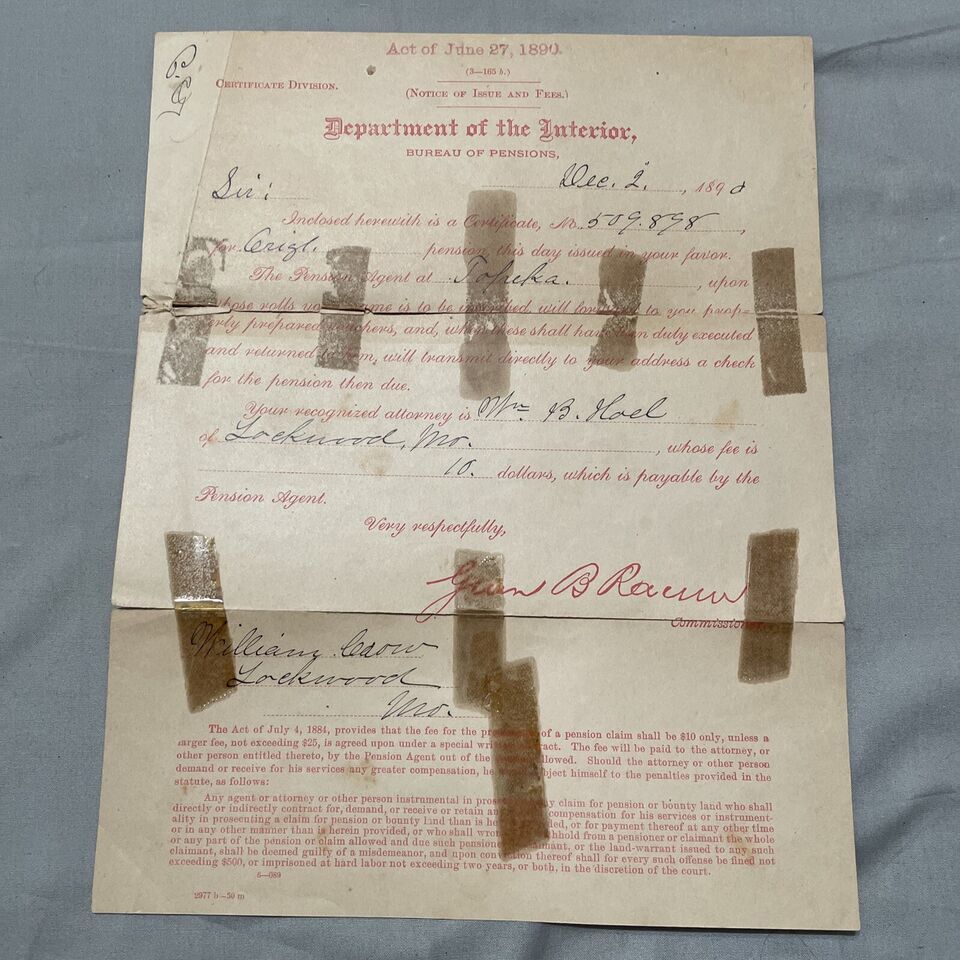 Act of June 27, 1890.
(3—165 b.)
CERTIFICATE DIVISION.
(NOTICE OF ISSUE AND FEES.)
Department of the Interior,
BUREAU OF PENSIONS,
Dec. 2, 1890
Sir:
Inclosed herewith is a Certificate, No. 509.898,
for Origl. pension this day issued in your favor.
The Pension Agent at Topeka., upon
whose rolls your name is to be inscribed, will forward to you prop-
erly prepared vouchers, and, when these shall have been duly executed
and returned to him, will transmit directly to your address a check
for the pension then due.
Your recognized attorney is Wm B. Hoel
of Lockwood, Mo., whose fee is
10. dollars, which is payable by the
Pension Agent.
Very respectfully,
Green B Raum
Commissioner.
William Crow
Lockwood
Mo.
The Act of July 4, 1884, provides that the fee for the of a pension claim shall be $10 only, unless a
larger fee, not exceeding $25, is agreed upon under a special written contract. The fee will be paid to the attorney, or
other person entitled thereto, by the Pension Agent out of the allowed. Should the attorney or other person
demand or receive for his services any greater compensation, he subject himself to the penalties provided in the
statute, as follows:
Any agent or attorney or other person instrumental in any claim for pension or bounty land who shall
directly or indirectly contract for, demand, or receive or retain any compensation for his services or instrument-
ality in prosecuting a claim for pension or bounty land than is or for payment thereof at any other time
or in any other manner than is herein provided, or who shall withhold from a pensioner or claimant the whole
or any part of the pension or claim allowed and due such pensioner claimant, or the land-warrant issued to any such
claimant, shall be deemed guilty of a misdemeanor, and upon conviction thereof shall for every such offense be fined not
exceeding $500, or imprisoned at hard labor not exceeding two years, or both, in the discretion of the court.
6—089
2977 b—50 m